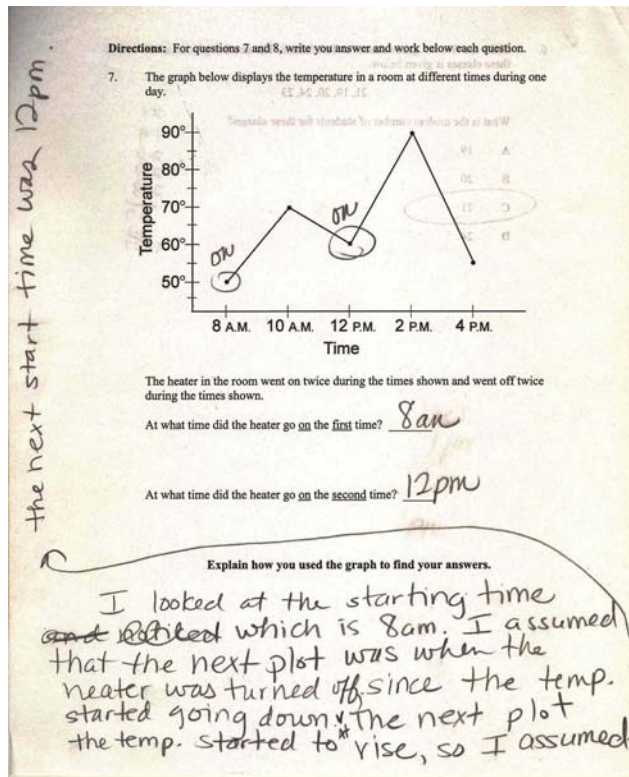 Directions: For questions 7 and 8, write you answer and work below each question.
7. The graph below displays the temperature in a room at different times during one
day.
90°
80°
70°
60°
50°
Temperature
on
on
8 A.M. 10 A.M. 12 P.M. 2 P.M. 4 P.M.
Time
The heater in the room went on twice during the times shown and went off twice
during the times shown.
At what time did the heater go on the first time? 8am
At what time did the heater go on the second time? 12pm
Explain how you used the graph to find your answers.
I looked at the starting time
and noticed which is 8am. I assumed
that the next plot was when the
heater was turned off, since the temp.
started going down. The next plot
the temp. started to rise, so I assumed
the next start time was 12pm.